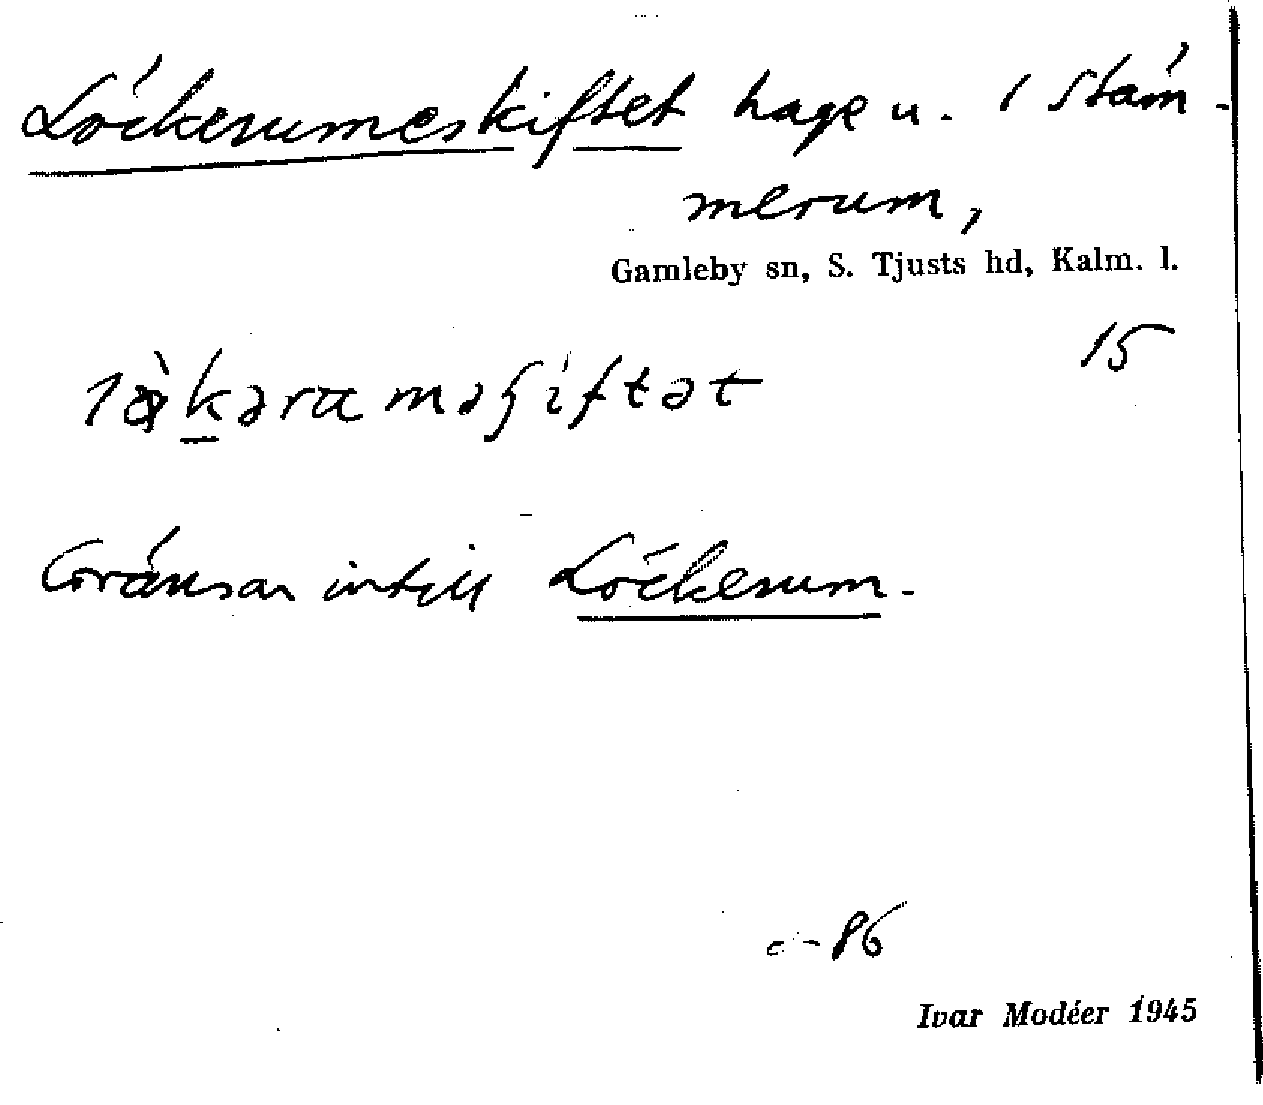 Löckerumeskiftet hage u. i Stäm-
merum,
Gamleby sn, S. Tjusts hd, Kalm. l.
15
Gränsar intill Löckerum.
-86
Ivar Modéer 1945